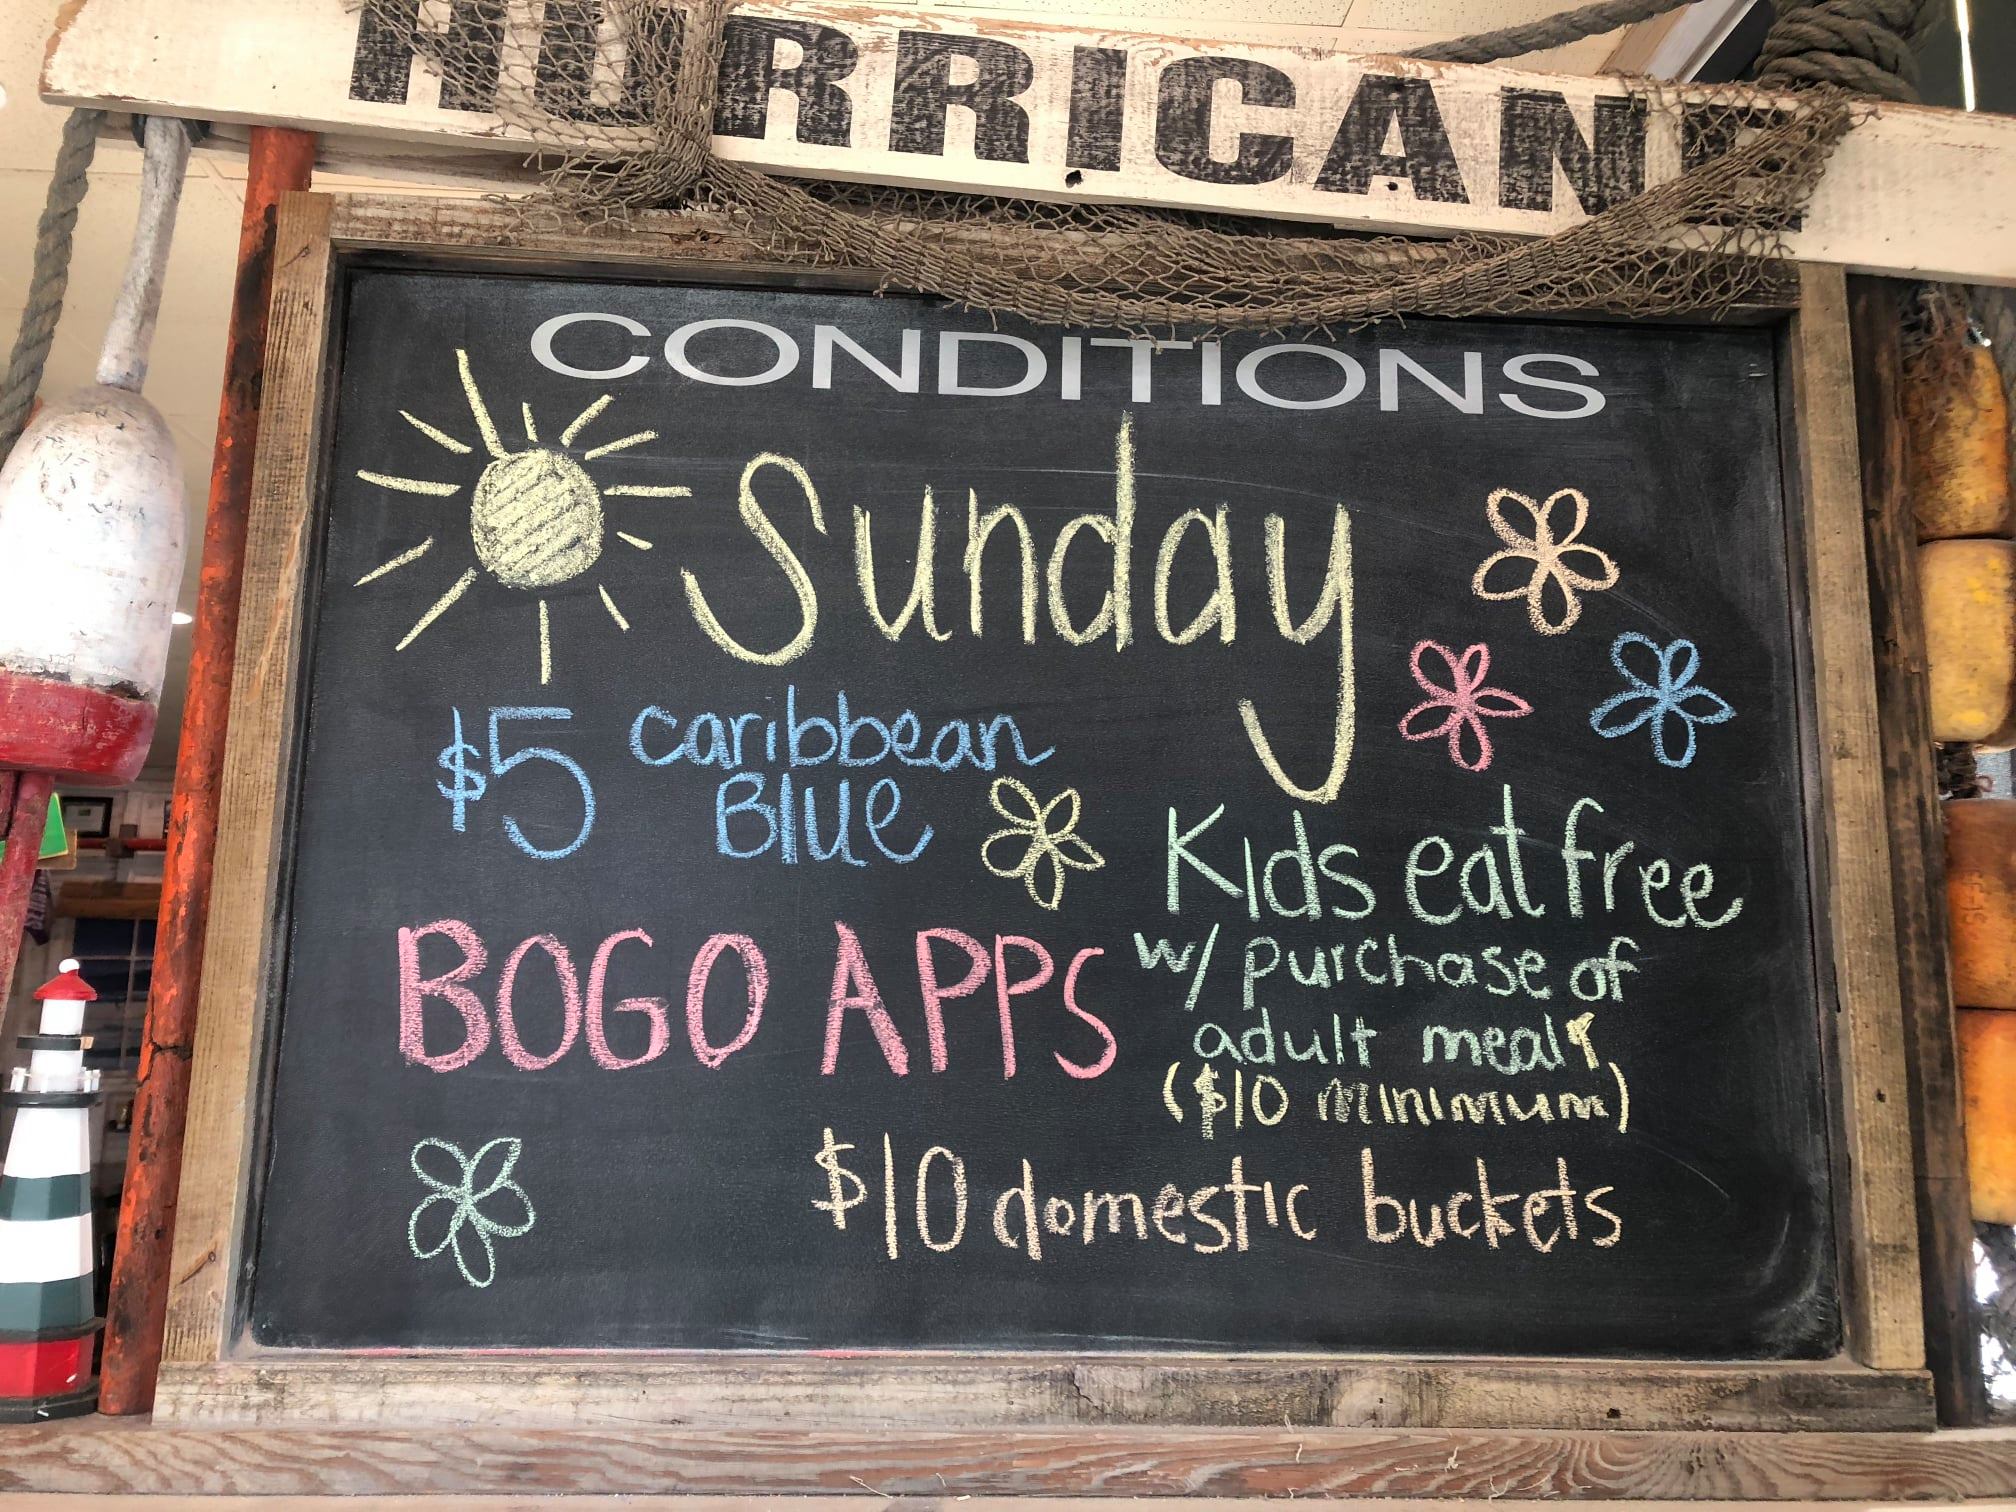 HURRICANE
CONDITIONS
Sunday
$5 Caribbean
Blue
Kids eat free
w/ purchase of
adult meal
($10 minimum)
BOGO APPS
$10 domestic buckets